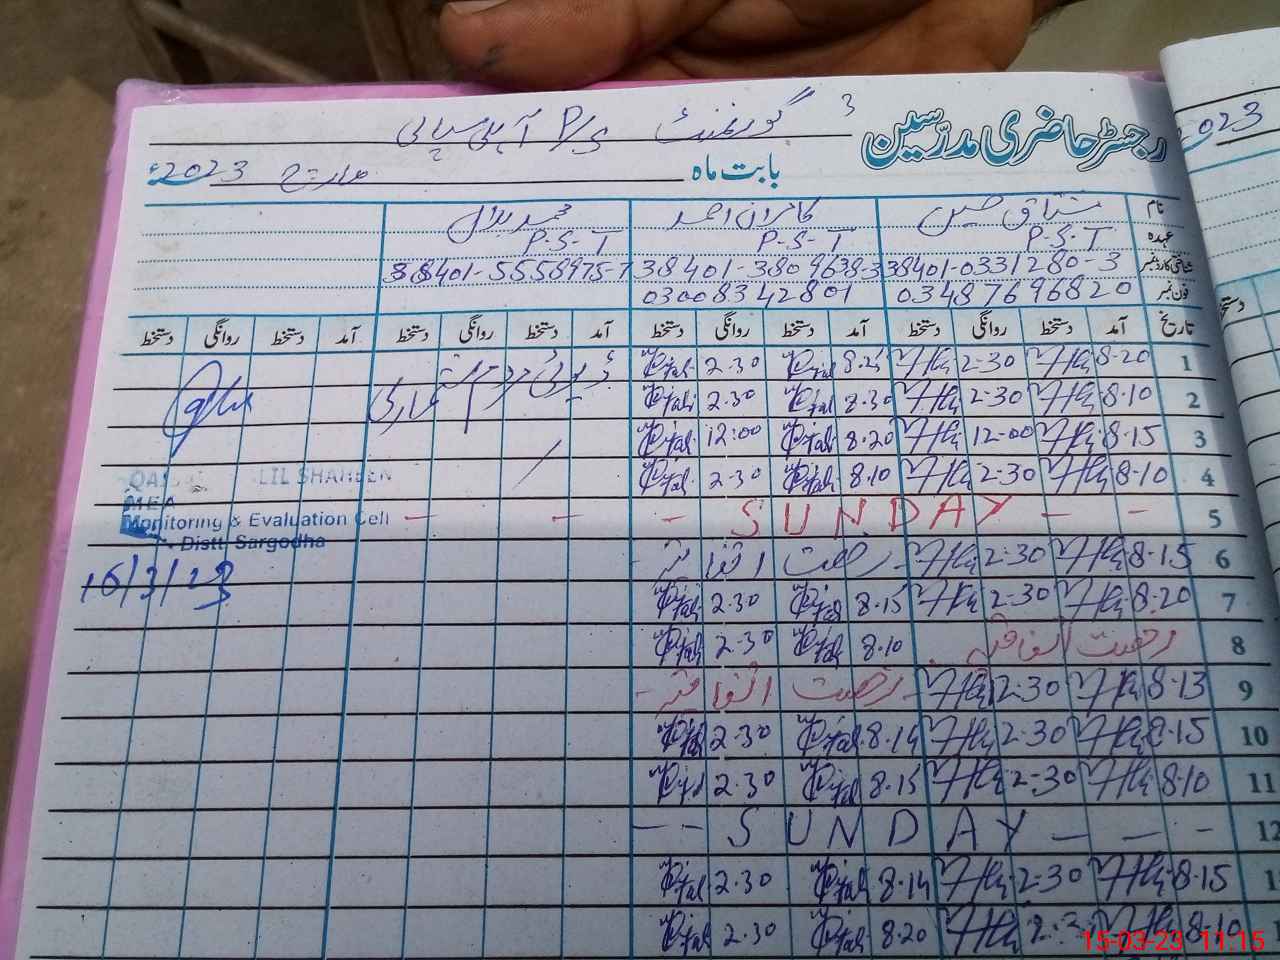 رجسٹر حاضری مدرسین
3 گورنمنٹ P/S
بابت ماہ مارچ 2023ء
2023
نام مشتاق حسین کامران احمد محمد بلال
عہدہ P.S.T P.S.T P.S.T
شناختی کارڈ نمبر 38401-0331280-3 38401-3809638-3 38401-5558975-7
فون نمبر 03487696820 03008342801
تاریخ آمد دستخط روانگی دستخط آمد دستخط روانگی دستخط آمد دستخط روانگی دستخط آمد دستخط روانگی دستخط
1 8-20 2-30 8.25 2.30
2 8-10 2-30 8.30 2.30
3 8-15 12-00 8.20 12:00
4 8-10 2-30 8.10 2.30
5 - - SUNDAY - - -
6 8-15 2-30 رخصت اتفاقیہ
7 8-20 2-30 8.15 2.30
8 رخصت اتفاقیہ 8.10 2.30
9 8-13 2-30 رخصت اتفاقیہ
10 8-15 2-30 8.14 2.30
11 8-10 2-30 8.15 2.30
12 - - - SUNDAY - -
8-15 2-30 8.14 2.30
8-10 8.20 2.30
LIL SHAHEEN
MEA
Monitoring & Evaluation Cell
Distt. Sargodha
16/3/23
15-03-23 11:15